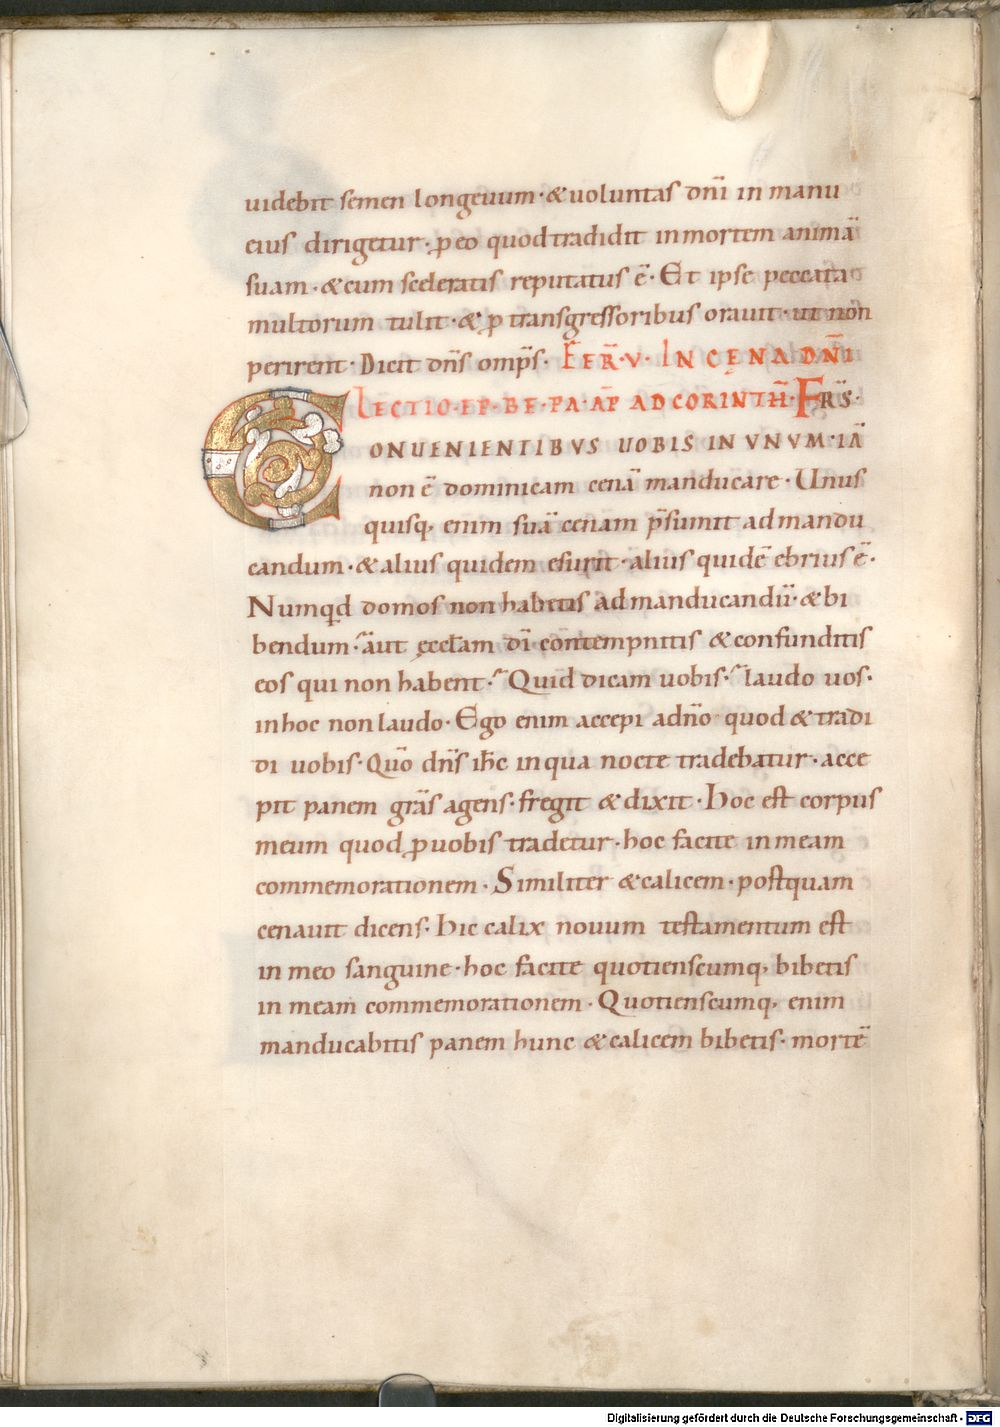 uidebit semen longeuum·&uoluntas dnī in manu
eius dirigetur·ꝓeo quod tradidit in mortem animā
suam·&cum sceleratis reputatus ē·Et ipse peccata
multorum tulit·&ꝓ transgressoribus orauit·ut non
perirent·Dicit dn̄s omp̄s· FER̄·V·IN CENA DN̄I
LECTIO·EP·BE·PA·AP̄ AD CORINTH̄·FR̄S·
CONUENIENTIBVS UOBIS IN VNVM·IĀ
non ē dominicam cenā manducare·Unus
quisq, enim suā cenam p̄sumit ad mandu
candum·&alius quidem esurit·alius quidē ebrius ē·
Numqd domos non habetis ad manducandū·&bi
bendum·aut ęccłam dī contempnitis &confunditis
eos qui non habent·Quid dicam uobis·laudo uos·
in hoc non laudo·Ego enim accepi adn̄o quod &tradi
di uobis·Quō dn̄s ih̄c in qua nocte tradebatur·acce
pit panem grās agens·fregit &dixit·hoc est corpus
meum quod ꝓuobis tradetur·hoc facite in meam
commemorationem·Similiter &calicem·postquam
cenauit dicens·hic calix nouum testamentum est
in meo sanguine·hoc facite quotienscumq, bibetis
in meam commemorationem·Quotienscumq, enim
manducabitis panem hunc &calicem bibetis·mortē
Digitalisierung gefördert durch die Deutsche Forschungsgemeinschaft - DFG